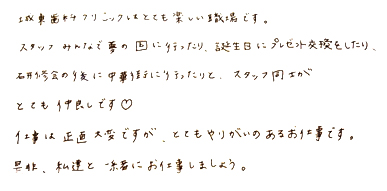 城東歯科クリニックはとても楽しい職場です。
スタッフみんなで夢の国に行ったり、誕生日にプレゼント交換をしたり、
研修会の後に中華街に行ったりと、スタッフ同士が
とても仲良しです♡
仕事は正直大変ですが、とてもやりがいのあるお仕事です。
是非、私達と一緒にお仕事しましょう。